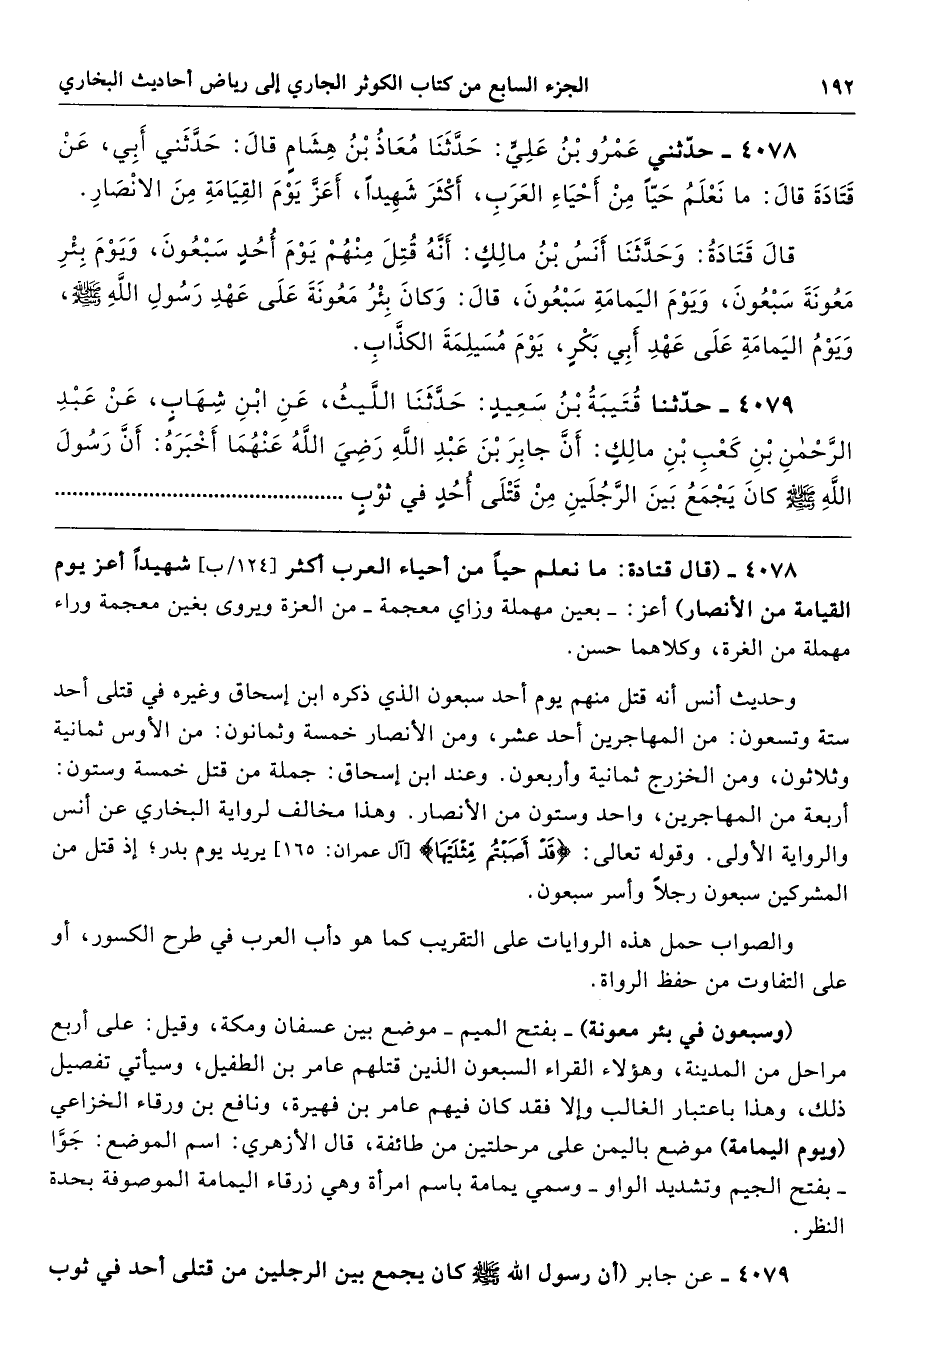 ١٩٢ الجزء السابع من كتاب الكوثر الجاري إلى رياض أحاديث البخاري
٤٠٧٨ ـ حدّثني عَمْرُو بْنُ عَلِيٍّ: حَدَّثَنَا مُعَاذُ بْنُ هِشَامٍ قالَ: حَدَّثَني أَبِي، عَنْ
قَتَادَةَ قالَ: ما نَعْلَمُ حَيّاً مِنْ أَحْيَاءِ العَرَبِ، أَكْثَرَ شَهِيداً، أَعَزَّ يَوْمَ القِيَامَةِ مِنَ الانْصَارِ.
قالَ قَتَادَةُ: وَحَدَّثَنَا أَنَسُ بْنُ مالِكٍ: أَنَّهُ قُتِلَ مِنْهُمْ يَوْمَ أُحُدٍ سَبْعُونَ، وَيَوْمَ بِئْرِ
مَعُونَةَ سَبْعُونَ، وَيَوْمَ اليَمامَةِ سَبْعُونَ، قالَ: وَكانَ بِئْرُ مَعُونَةَ عَلَى عَهْدِ رَسُولِ اللَّهِ ﷺ،
وَيَوْمُ اليَمامَةِ عَلَى عَهْدِ أَبِي بَكْرٍ، يَوْمَ مُسَيلِمَةَ الكَذَّابِ.
٤٠٧٩ ـ حدّثنا قُتَيبَةُ بْنُ سَعِيدٍ: حَدَّثَنَا اللَّيثُ، عَنِ ابْنِ شِهَابٍ، عَنْ عَبْدِ
الرَّحْمٰنِ بْنِ كَعْبِ بْنِ مالِكٍ: أَنَّ جابِرَ بْنَ عَبْدِ اللَّهِ رَضِيَ اللَّهُ عَنْهُمَا أَخْبَرَهُ: أَنَّ رَسُولَ
اللَّهِ ﷺ كانَ يَجْمَعُ بَينَ الرَّجُلَينِ مِنْ قَتْلَى أُحُدٍ في ثَوْبٍ ................................................
٤٠٧٨ ـ (قال قتادة: ما نعلم حياً من أحياء العرب أكثر [١٢٤/ب] شهيداً أعز يوم
القيامة من الأنصار) أعز: ـ بعين مهملة وزاي معجمة ـ من العزة ويروى بغين معجمة وراء
مهملة من الغرة، وكلاهما حسن.
وحديث أنس أنه قتل منهم يوم أحد سبعون الذي ذكره ابن إسحاق وغيره في قتلى أحد
ستة وتسعون: من المهاجرين أحد عشر، ومن الأنصار خمسة وثمانون: من الأوس ثمانية
وثلاثون، ومن الخزرج ثمانية وأربعون. وعند ابن إسحاق: جملة من قتل خمسة وستون:
أربعة من المهاجرين، واحد وستون من الأنصار. وهذا مخالف لرواية البخاري عن أنس
والرواية الأولى. وقوله تعالى: ﴿قَدْ أَصَبْتُم مِّثْلَيْهَا﴾ [آل عمران: ١٦٥] يريد يوم بدر؛ إذ قتل من
المشركين سبعون رجلاً وأسر سبعون.
والصواب حمل هذه الروايات على التقريب كما هو دأب العرب في طرح الكسور، أو
على التفاوت من حفظ الرواة.
(وسبعون في بئر معونة) ـ بفتح الميم ـ موضع بين عسفان ومكة، وقيل: على أربع
مراحل من المدينة، وهؤلاء القراء السبعون الذين قتلهم عامر بن الطفيل، وسيأتي تفصيل
ذلك، وهذا باعتبار الغالب وإلا فقد كان فيهم عامر بن فهيرة، ونافع بن ورقاء الخزاعي
(ويوم اليمامة) موضع باليمن على مرحلتين من طائفة، قال الأزهري: اسم الموضع: جَوَّا
ـ بفتح الجيم وتشديد الواو ـ وسمي يمامة باسم امرأة وهي زرقاء اليمامة الموصوفة بحدة
النظر.
٤٠٧٩ ـ عن جابر (أن رسول الله ﷺ كان يجمع بين الرجلين من قتلى أحد في ثوب